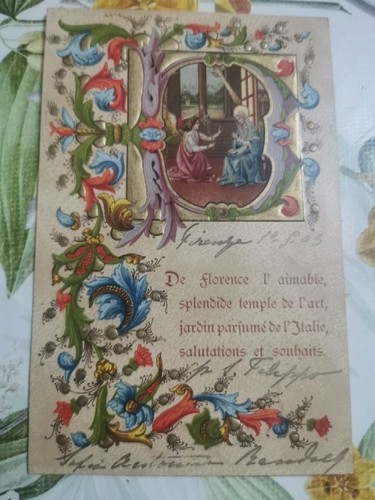 Firenze
De Florence l'aimable,
splendide temple de l'art,
jardin parfumé de l'Italie,
salutations et souhaits.
Filippo